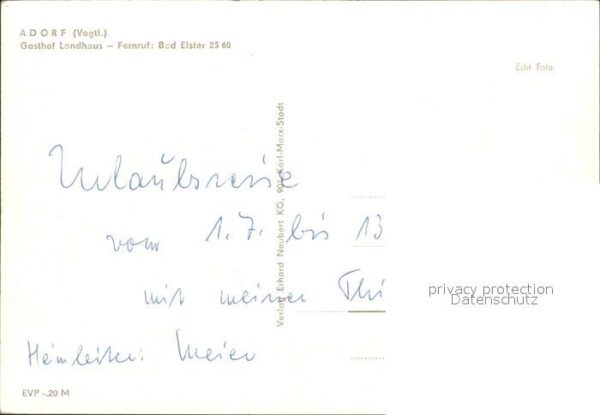 ADORF (Vogtl.)
Gasthof Landhaus – Fernruf: Bad Elster 25 60
Echt Foto
Verlag Erhard Neubert KG, 901 Karl-Marx-Stadt
Urlaubsreise
vom 1.7. bis 13
mit meiner
Heimleiter: Meier
privacy protection
Datenschutz
EVP -.20 M